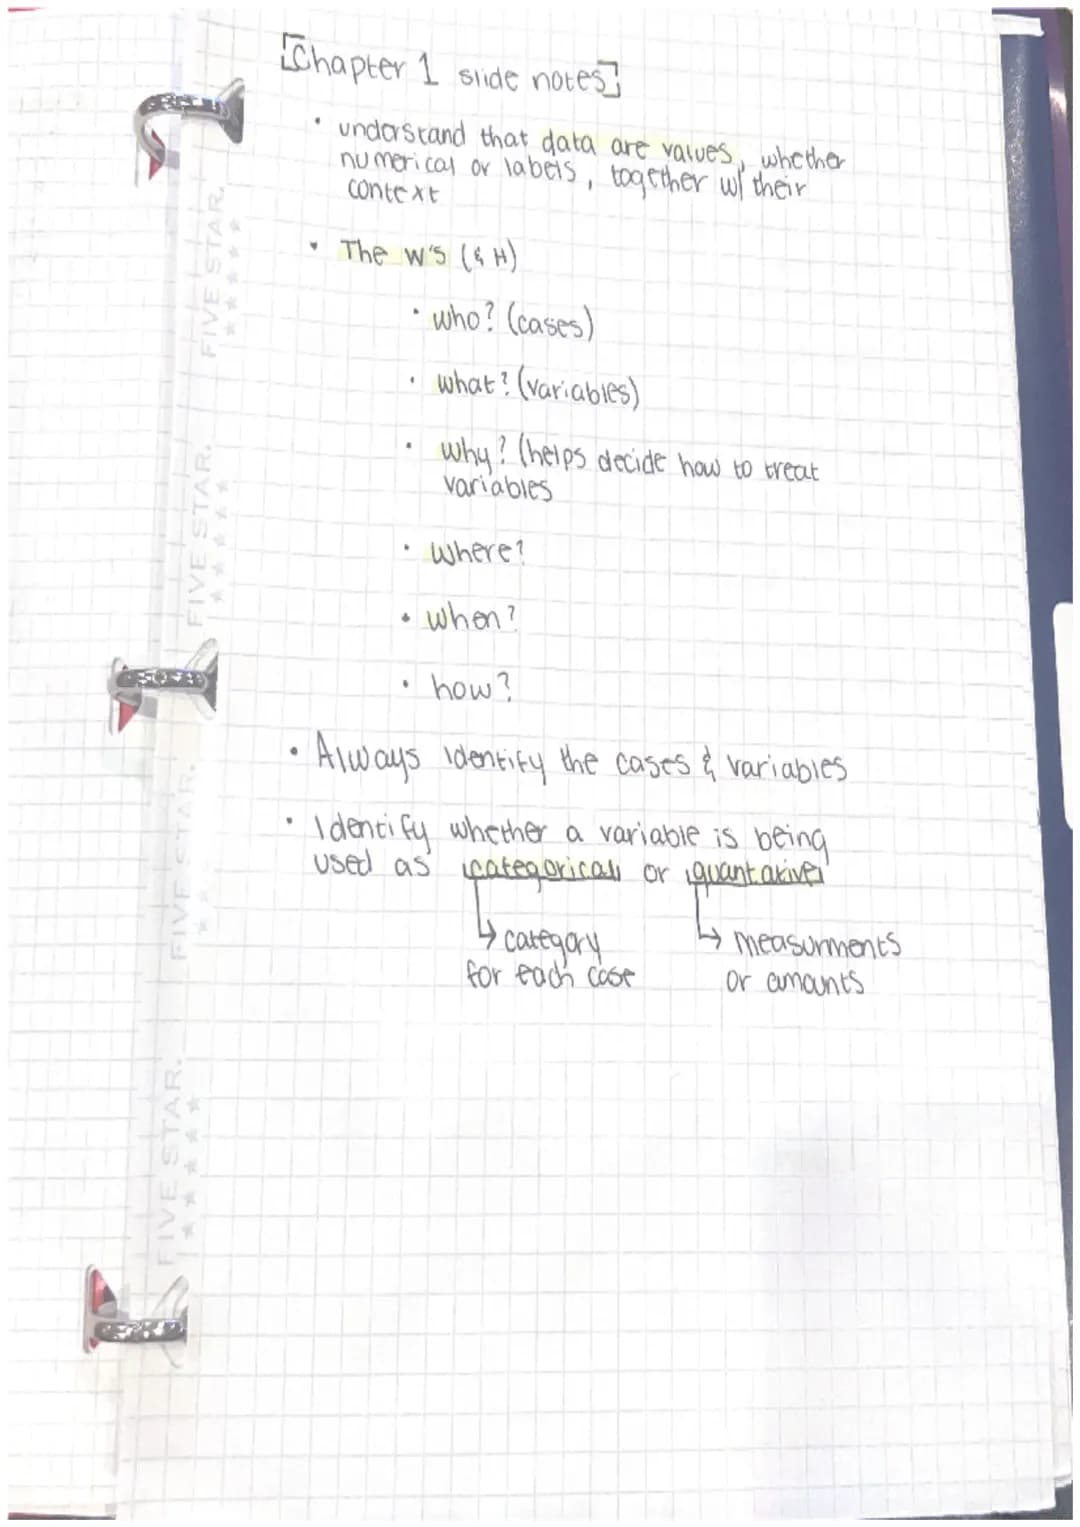 [Chapter 1 slide notes]
• understand that data are values, whether
numerical or labels, together w/ their
context
• The W's (& H)
• who? (cases)
• what? (variables)
• why? (helps decide how to treat
variables
• where?
• when?
• how?
• Always identify the cases & variables
• Identify whether a variable is being
used as categorical or quantative
↳ category
for each case
↳ measurments
or amounts
FIVE STAR.
FIVE STAR.
FIVE STAR.
FIVE STAR.